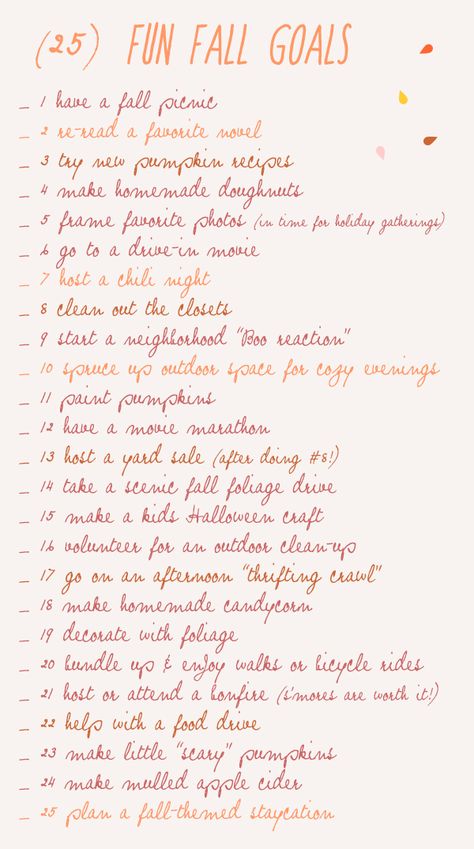 (25) FUN FALL GOALS
_ 1 have a fall picnic
_ 2 re-read a favorite novel
_ 3 try new pumpkin recipes
_ 4 make homemade doughnuts
_ 5 frame favorite photos (in time for holiday gatherings)
_ 6 go to a drive-in movie
_ 7 host a chili night
_ 8 clean out the closets
_ 9 start a neighborhood "Boo reaction"
_ 10 spruce up outdoor space for cozy evenings
_ 11 paint pumpkins
_ 12 have a movie marathon
_ 13 host a yard sale (after doing #8!)
_ 14 take a scenic fall foliage drive
_ 15 make a kids Halloween craft
_ 16 volunteer for an outdoor clean-up
_ 17 go on an afternoon "thrifting crawl"
_ 18 make homemade candycorn
_ 19 decorate with foliage
_ 20 bundle up & enjoy walks or bicycle rides
_ 21 host or attend a bonfire (s'mores are worth it!)
_ 22 help with a food drive
_ 23 make little "scary" pumpkins
_ 24 make mulled apple cider
_ 25 plan a fall-themed staycation